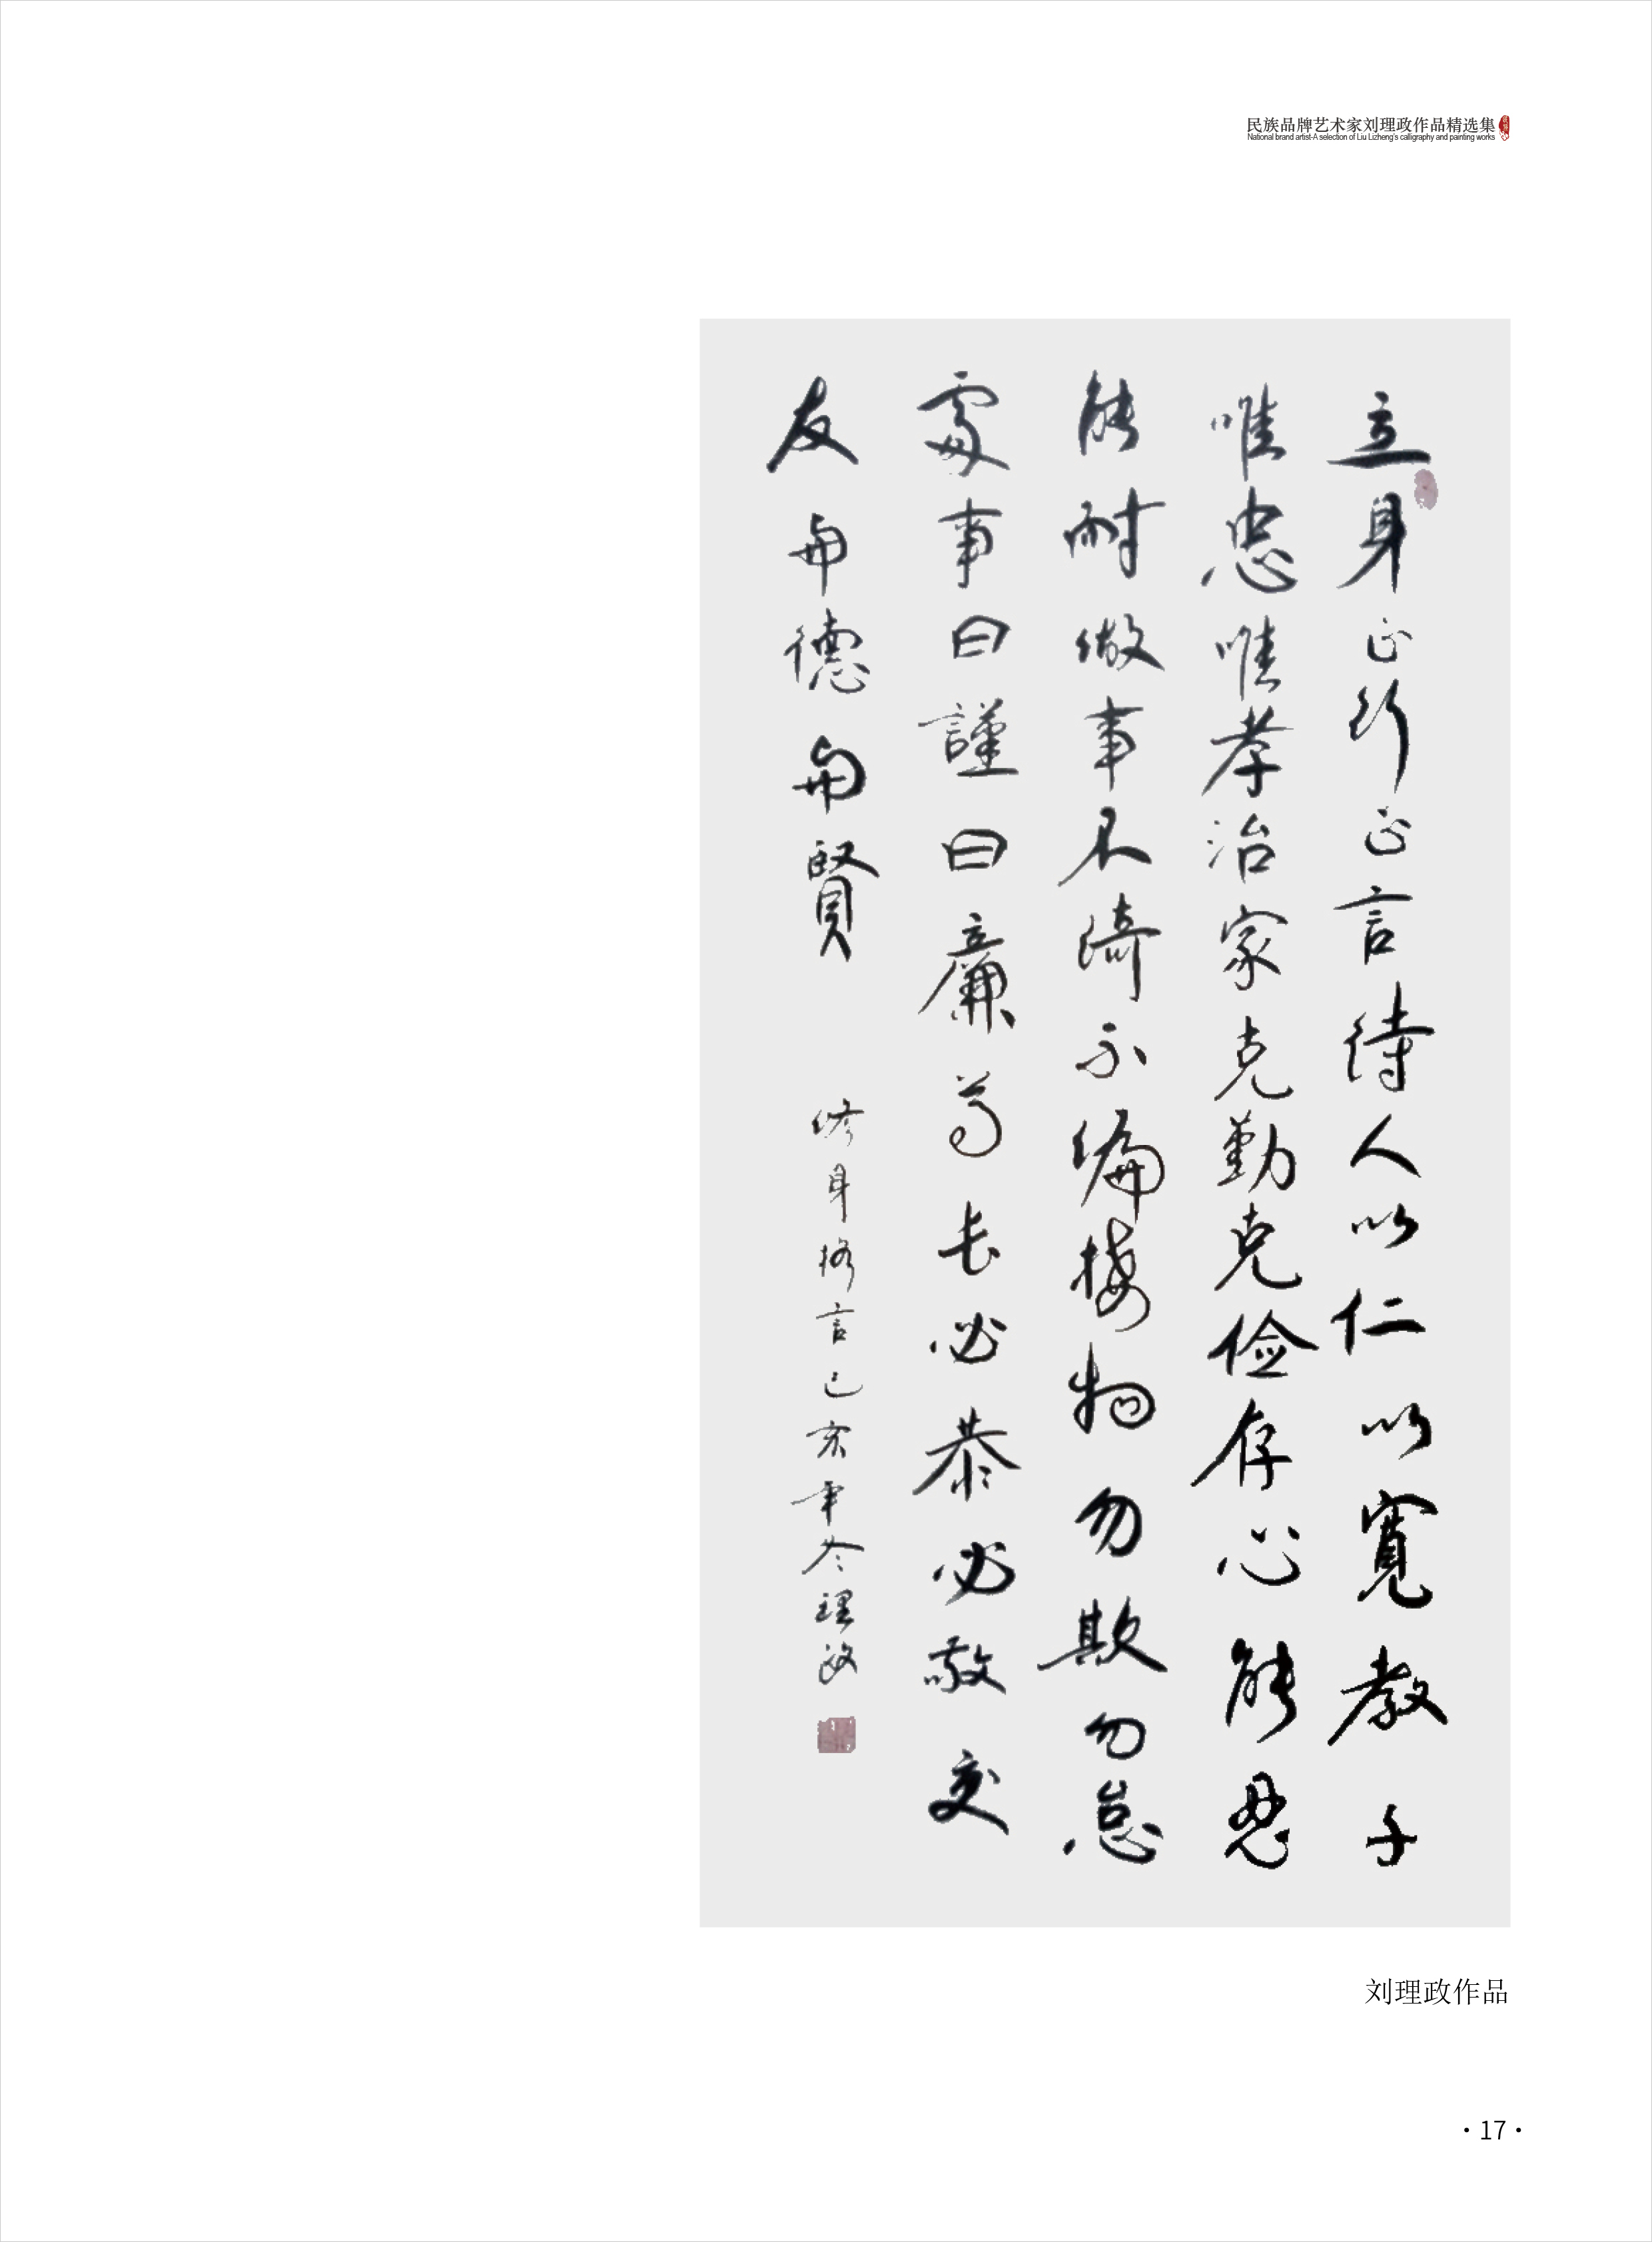 民族品牌艺术家刘理政作品精选集
National brand artist-A selection of Liu Lizheng's calligraphy and painting works
立身正行正言待人以仁以寬教子
唯忠唯孝治家克勤克儉存心能忍
能耐做事不倚不偏接物勿欺勿怠
處事曰謹曰廉尊长必恭必敬交
友與德與賢
修身格言己亥年冬理政
刘理政作品
·17·